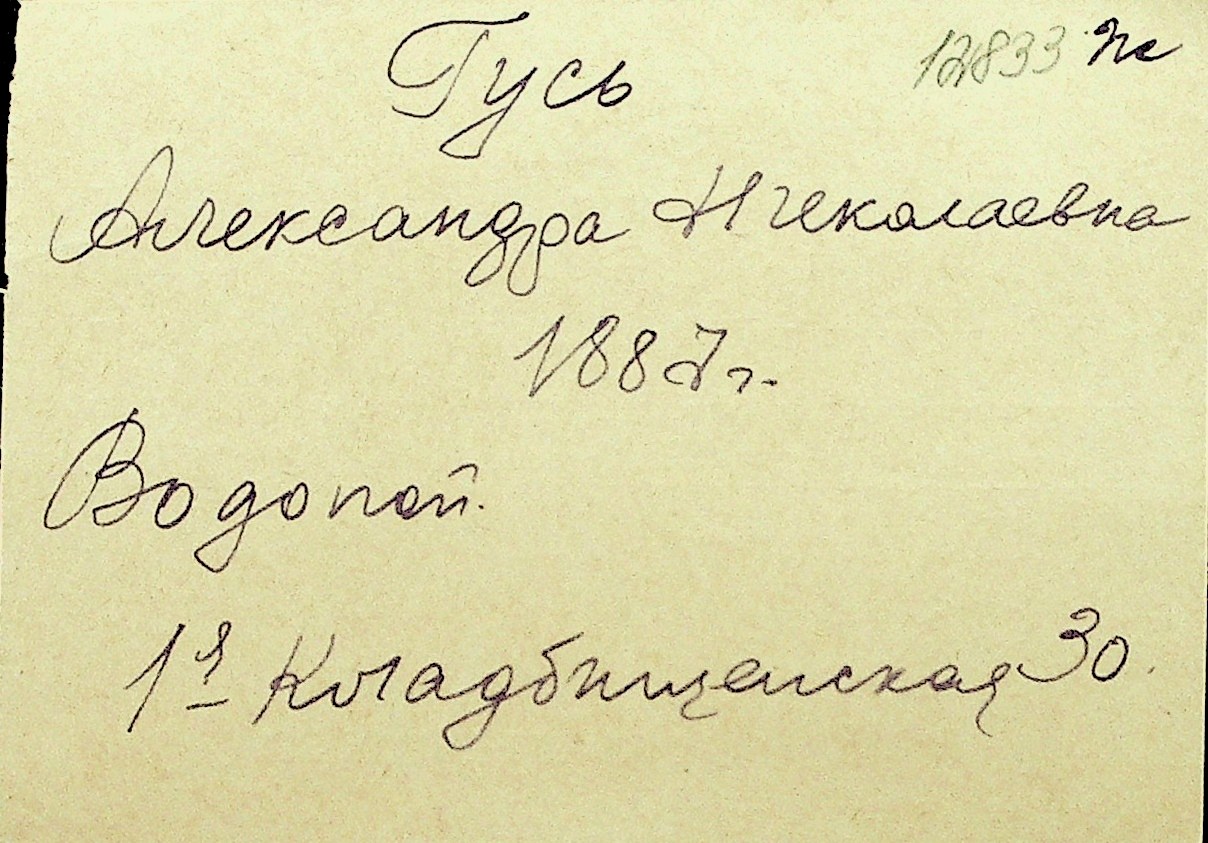 12833 Пс
Гусь
Александра Николаевна
1887 г.
Водопой.
1я Кладбищенская 30.